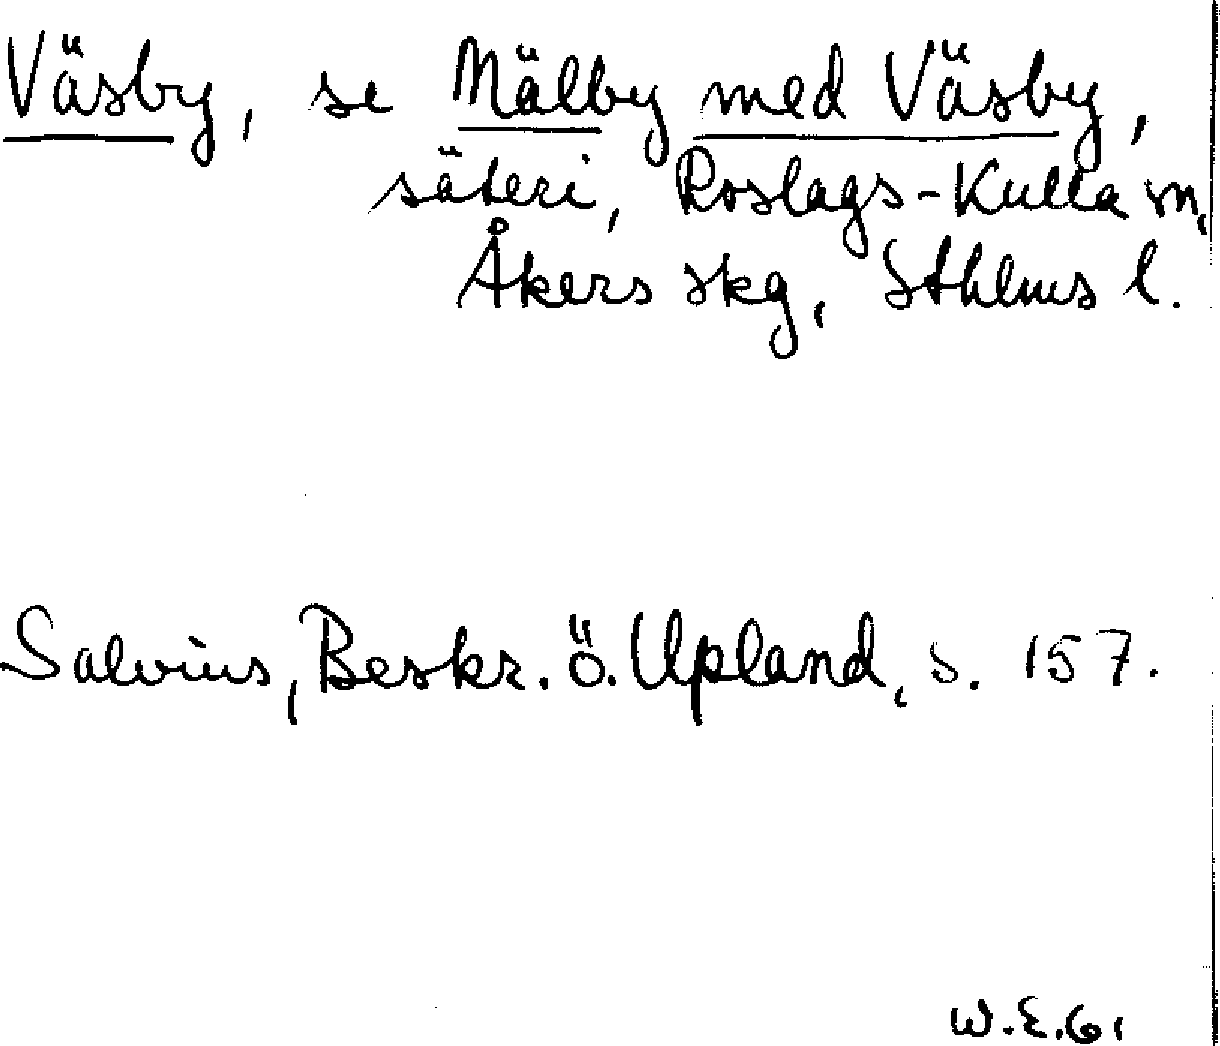 Väsby, se Mälby med Väsby,
säteri, Roslags-Kulla sn,
Åkers skg, Sthlms l.
Salvius, Beskr. ö. Upland, s. 157.
W.E.G.